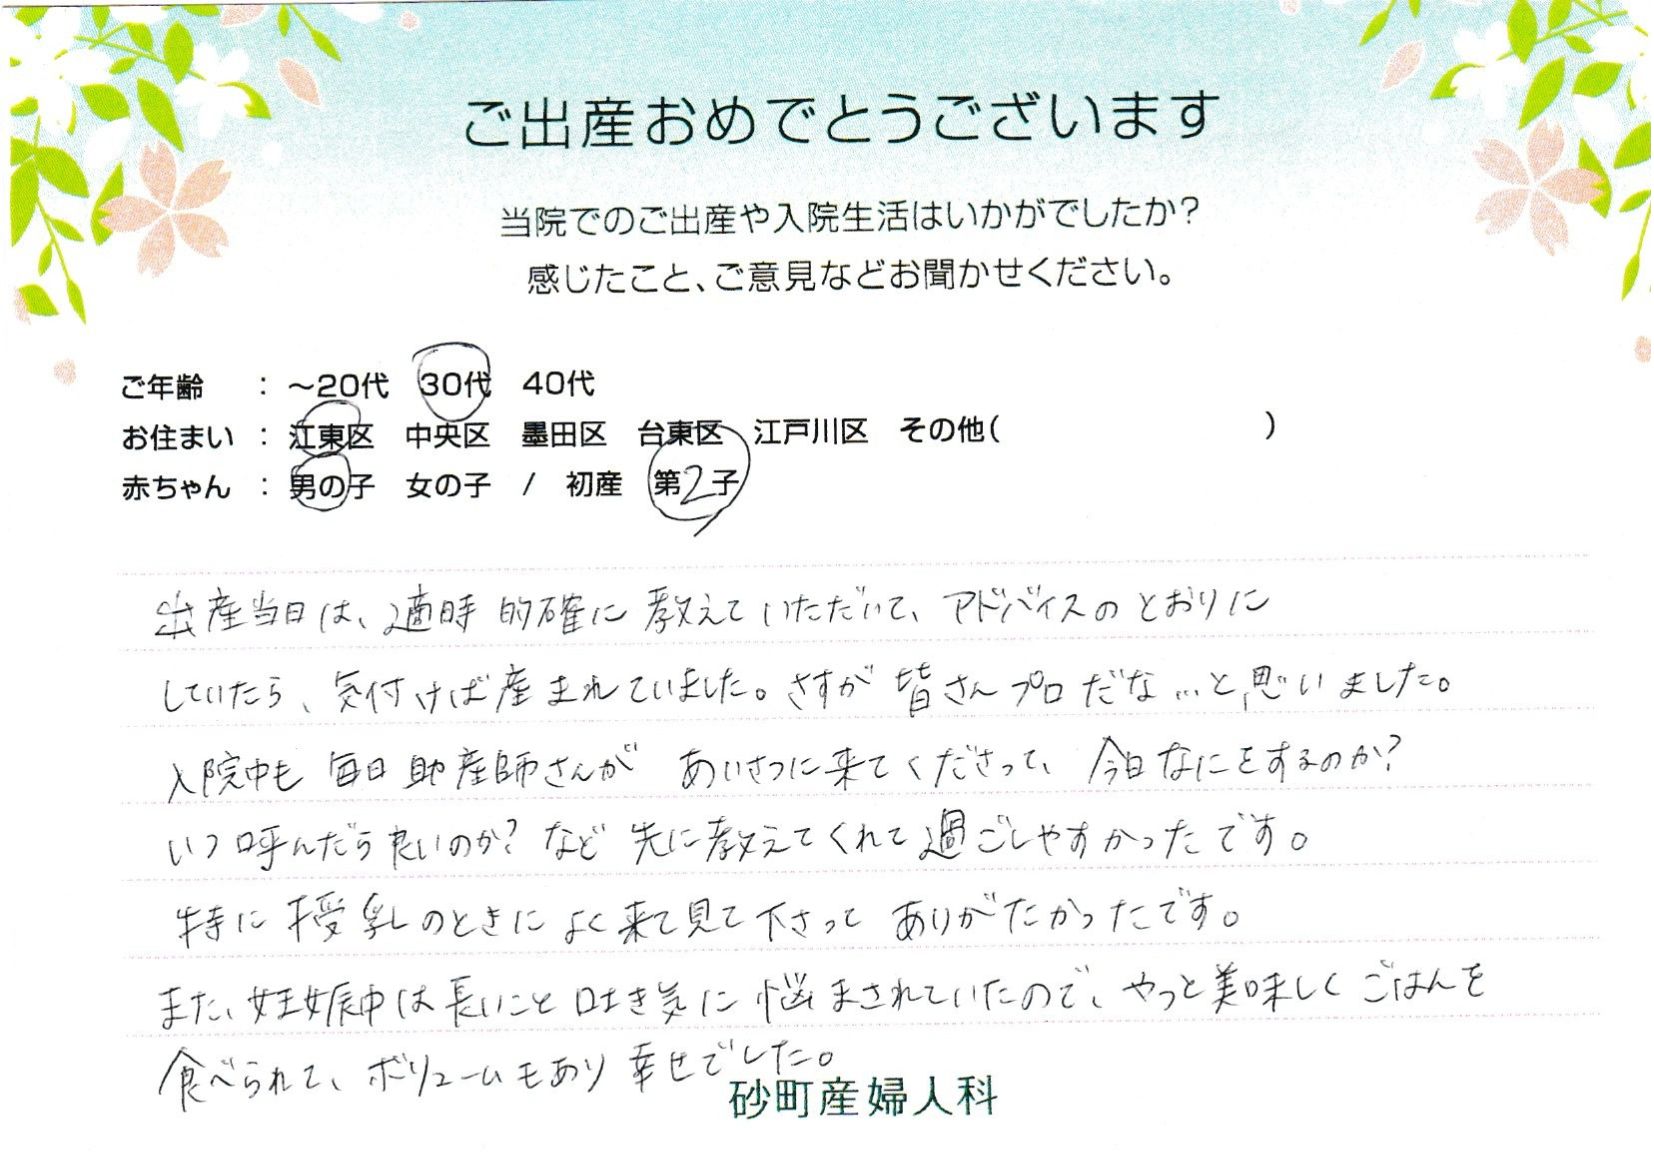 ご出産おめでとうございます
当院でのご出産や入院生活はいかがでしたか?
感じたこと、ご意見などお聞かせください。
ご年齢 : ～20代 30代 40代
お住まい : 江東区 中央区 墨田区 台東区 江戸川区 その他( )
赤ちゃん : 男の子 女の子 / 初産 第2子
出産当日は、適時的確に教えていただいて、アドバイスのとおりに
していたら、気付けば産まれていました。さすが皆さんプロだな…と思いました。
入院中も毎日助産師さんがあいさつに来てくださって、今日なにをするのか?
いつ呼んだら良いのか?など先に教えてくれて過ごしやすかったです。
特に授乳のときによく来て見て下さってありがたかったです。
また、妊娠中は長いこと吐き気に悩まされていたので、やっと美味しくごはんを
食べられて、ボリュームもあり幸せでした。
砂町産婦人科